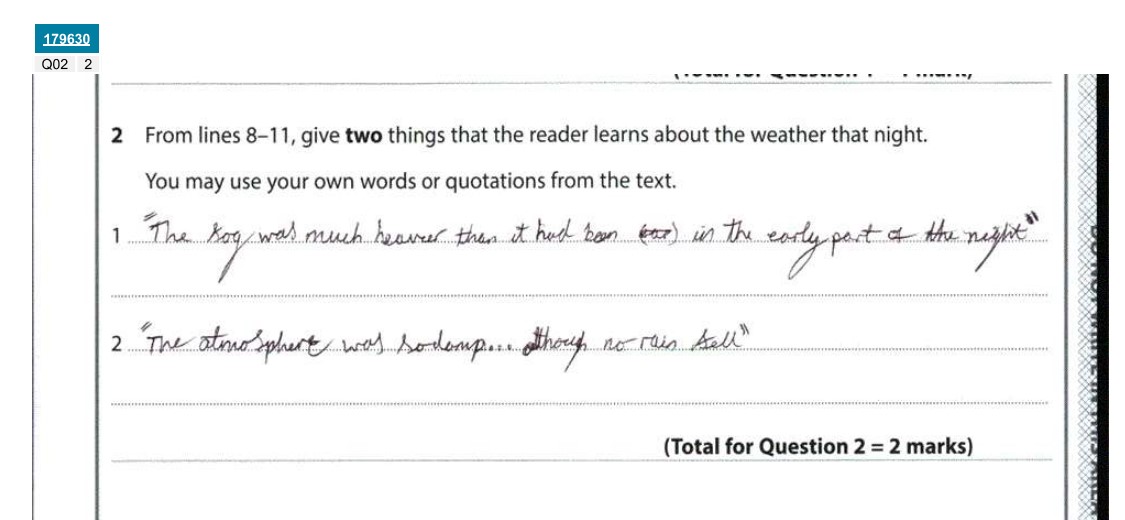 179630
Q02 2
2 From lines 8–11, give two things that the reader learns about the weather that night.
You may use your own words or quotations from the text.
1 "The fog was much heavier than it had been in the early part of the night"
2 "The atmosphere was so damp... although no rain fell"
(Total for Question 2 = 2 marks)